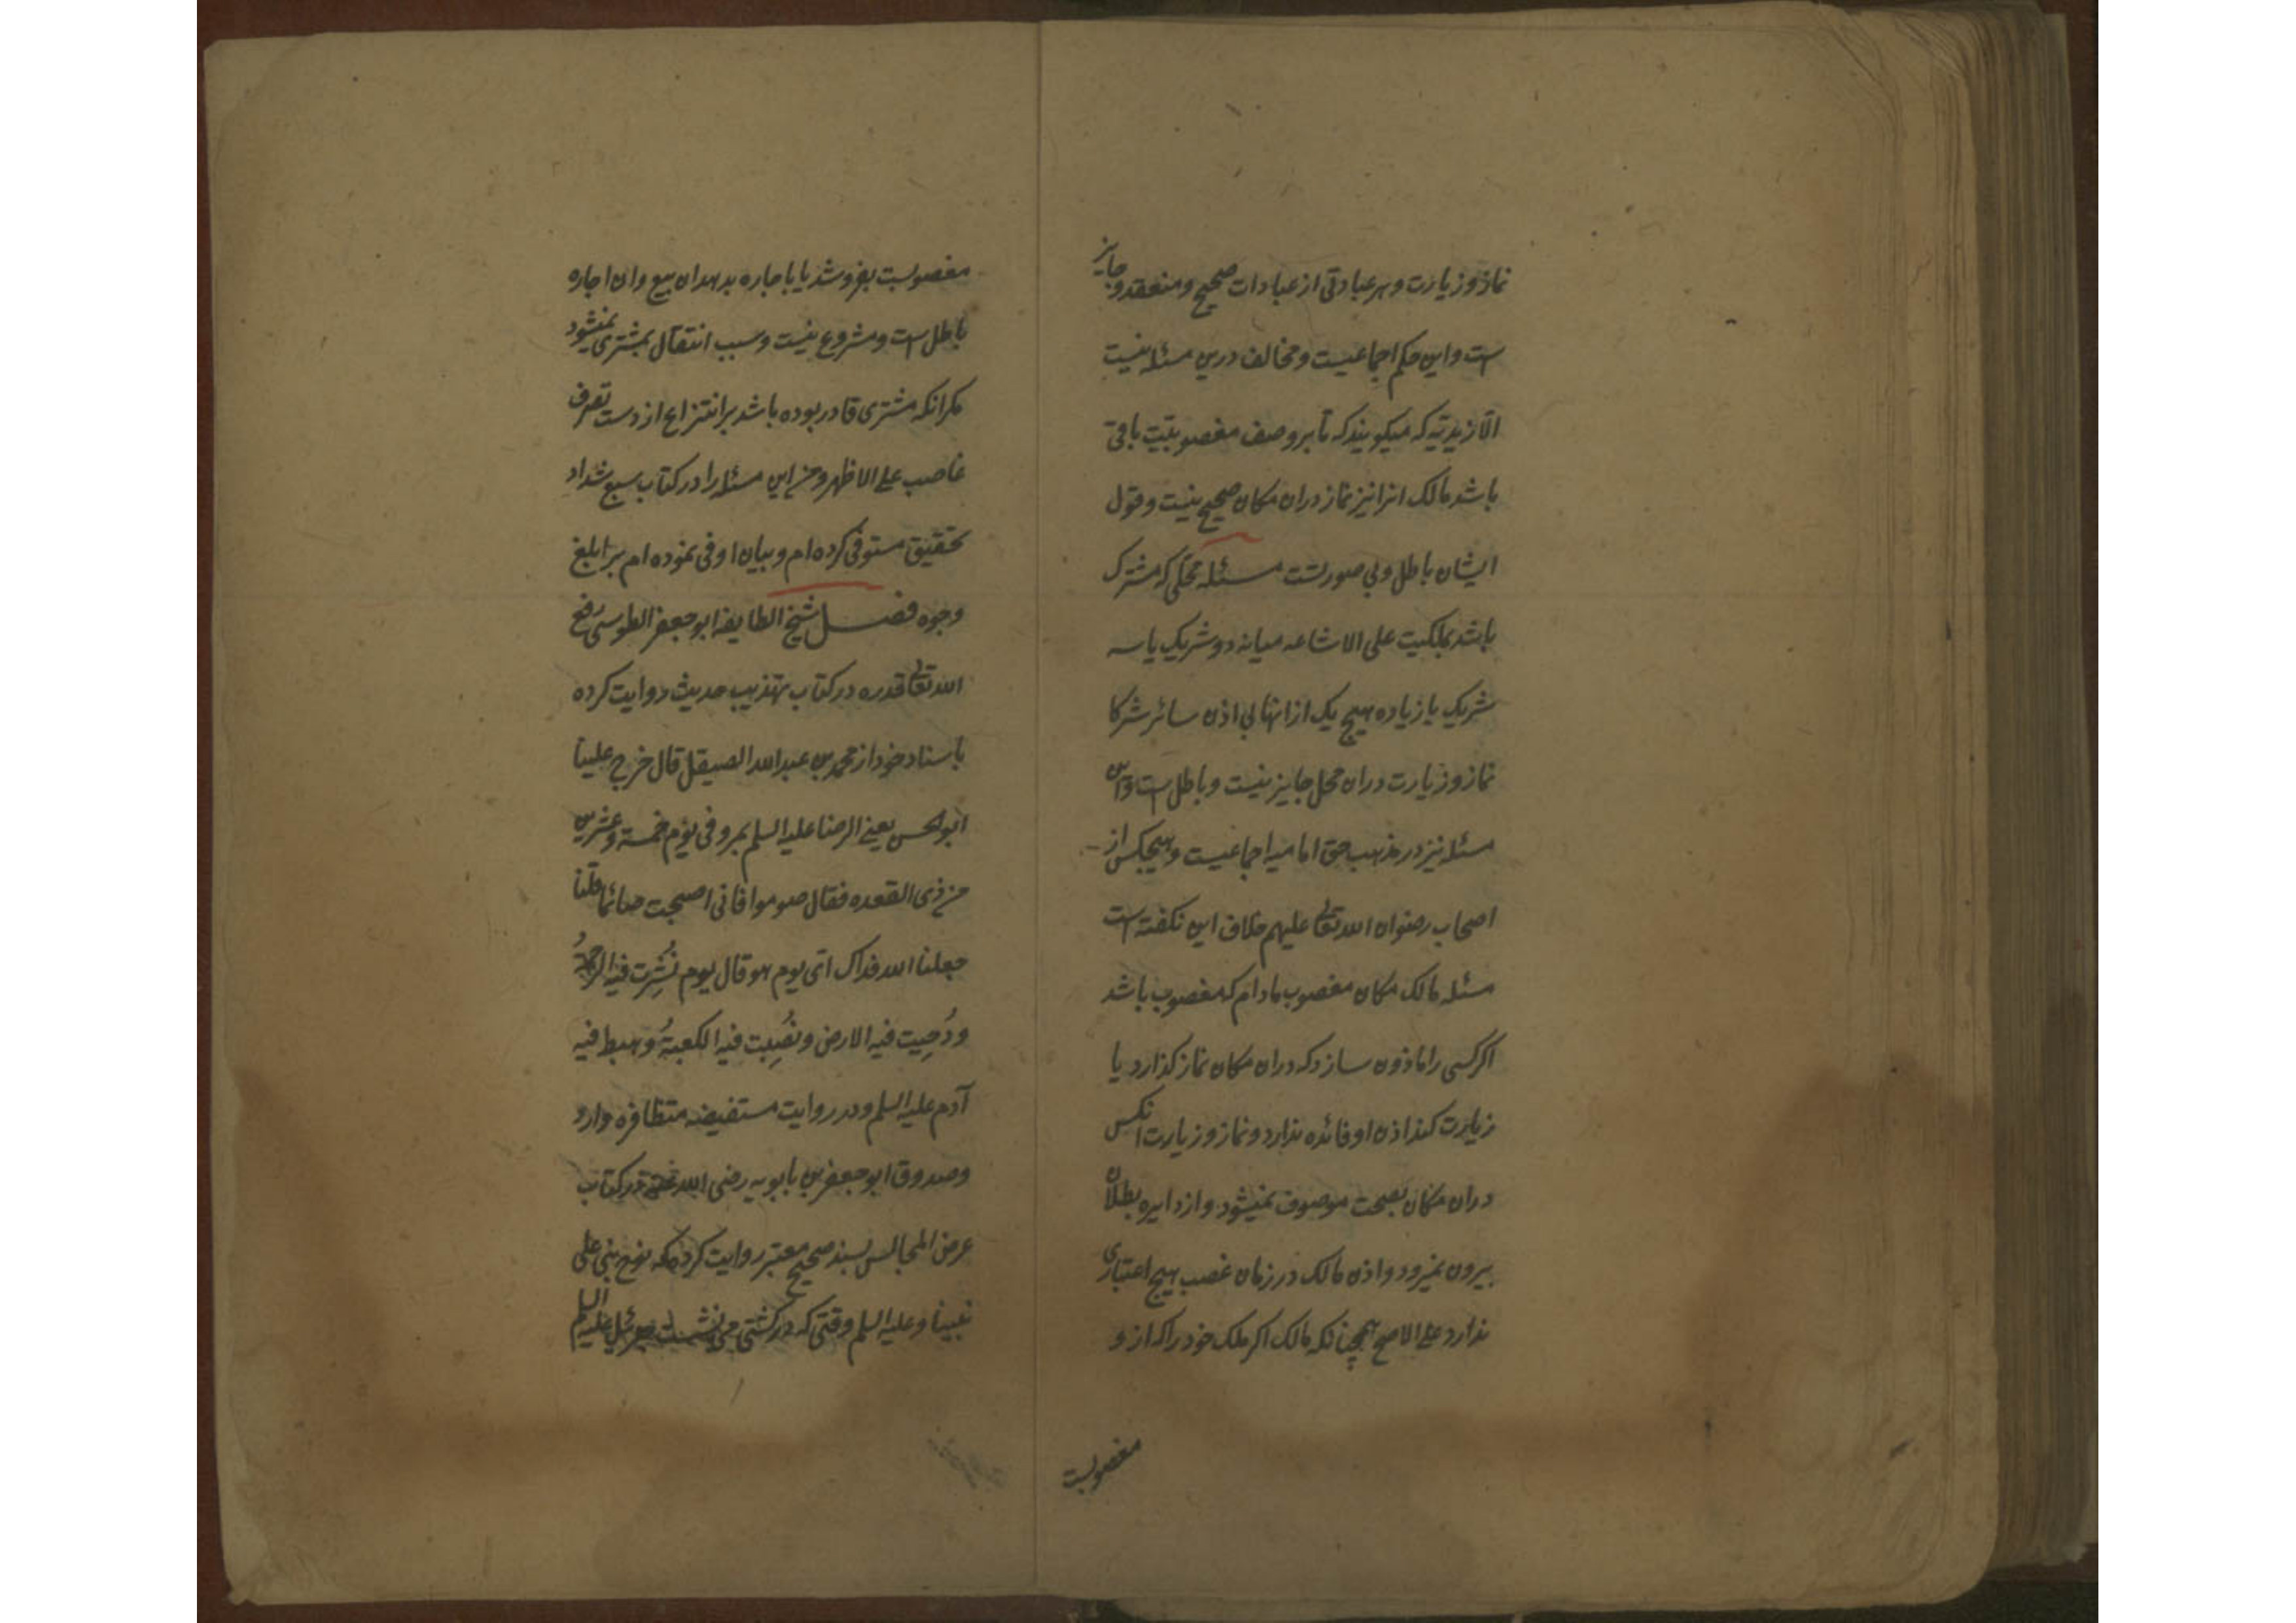 نماز و زیارت و هر عبادتی از عبادات صحیح و منعقد و جایز
است و این حکم اجماعیست و مخالف درین مسئله نیست
الا زیدیه که میکویند که تا بر وصف مغصوبیت باقی
باشد مالک انرا نیز نماز دران مکان صحیح نیست و قول
ایشان باطل و بی صورتست مسئله محلی که مشترک
باشد بملکیت علی الاشاعه میانه دو شریک یا سه
شریک یا زیاده هیچ یک از انها بی اذن سائر شرکا
نماز و زیارت دران محل جایز نیست و باطل است و این
مسئله نیز در مذهب حق امامیه اجماعیست و هیچکس از
اصحاب رضوان الله تعالی علیهم خلاف این نکفته است
مسئله مالک مکان مغصوب مادام که مغصوب باشد
اکر کسی را ماذون سازد که دران مکان نماز کذارد یا
زیارت کند اذن او فائده ندارد و نماز و زیارت انکس
دران مکان بصحت موصوف نمیشود و از دایره بطلان
بیرون نمیرود و اذن مالک در زمان غصب هیچ اعتباری
ندارد علی الاصح همچنانکه مالک اکر ملک خود را که از و
مغصوبست
مغصوبست بفروشد یا باجاره بدهد ان بیع و ان اجاره
باطل است و مشروع نیست و سبب انتقال بمشتری نمیشود
مکر انکه مشتری قادر بوده باشد بر انتزاع از دست تصرف
غاصب علی الاظهر و من این مسئله را در کتاب سبع شداد
تحقیق مستوفی کرده ام و بیان اوفی نموده ام بر ابلغ
وجوه فصل شیخ الطایفه ابو جعفر الطوسی رفع
الله تعالی قدره در کتاب تهذیب حدیث روایت کرده
باسناد خود از محمد بن عبد الله الصیقل قال خرج علینا
ابو الحسن یعنی الرضا علیه السلم بمرو فی یوم خمسة و عشرین
من ذی القعده فقال صوموا فانی اصبحت صائما قلنا
جعلنا الله فداک ای یوم هو قال یوم نُشِرت فیه الرحمةُ
و دُحِیت فیه الارض و نُصِبت فیه الکعبةُ و هبط فیه
آدم علیه السلم و در روایت مستفیضه متظافره وارد
و صدوق ابو جعفر بن بابویه رضی الله عنه در کتاب
عرض المجالس بسند صحیح معتبر روایت کرده که نوح نبی علی
نبینا و علیه السلم وقتی که در کشتی می نشست جبرئیل علیه السلم